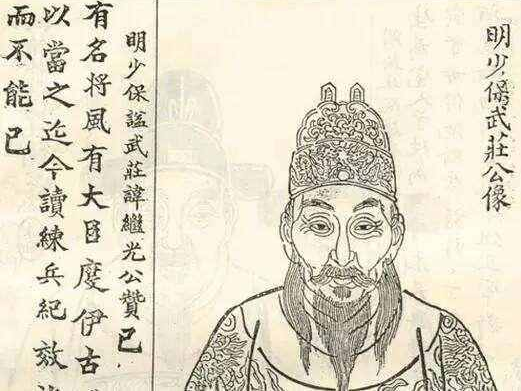 明少保武莊公像
明少保謚武莊諱繼光公贊已
有名将風有大臣度伊古
以當之近今讀練兵紀效
而不能已